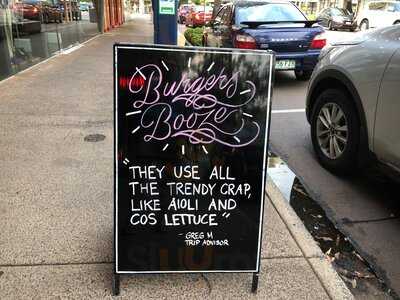 Burgers
Booze
"THEY USE ALL
THE TRENDY CRAP,
LIKE AIOLI AND
COS LETTUCE"
- GREG M
TRIP ADVISOR